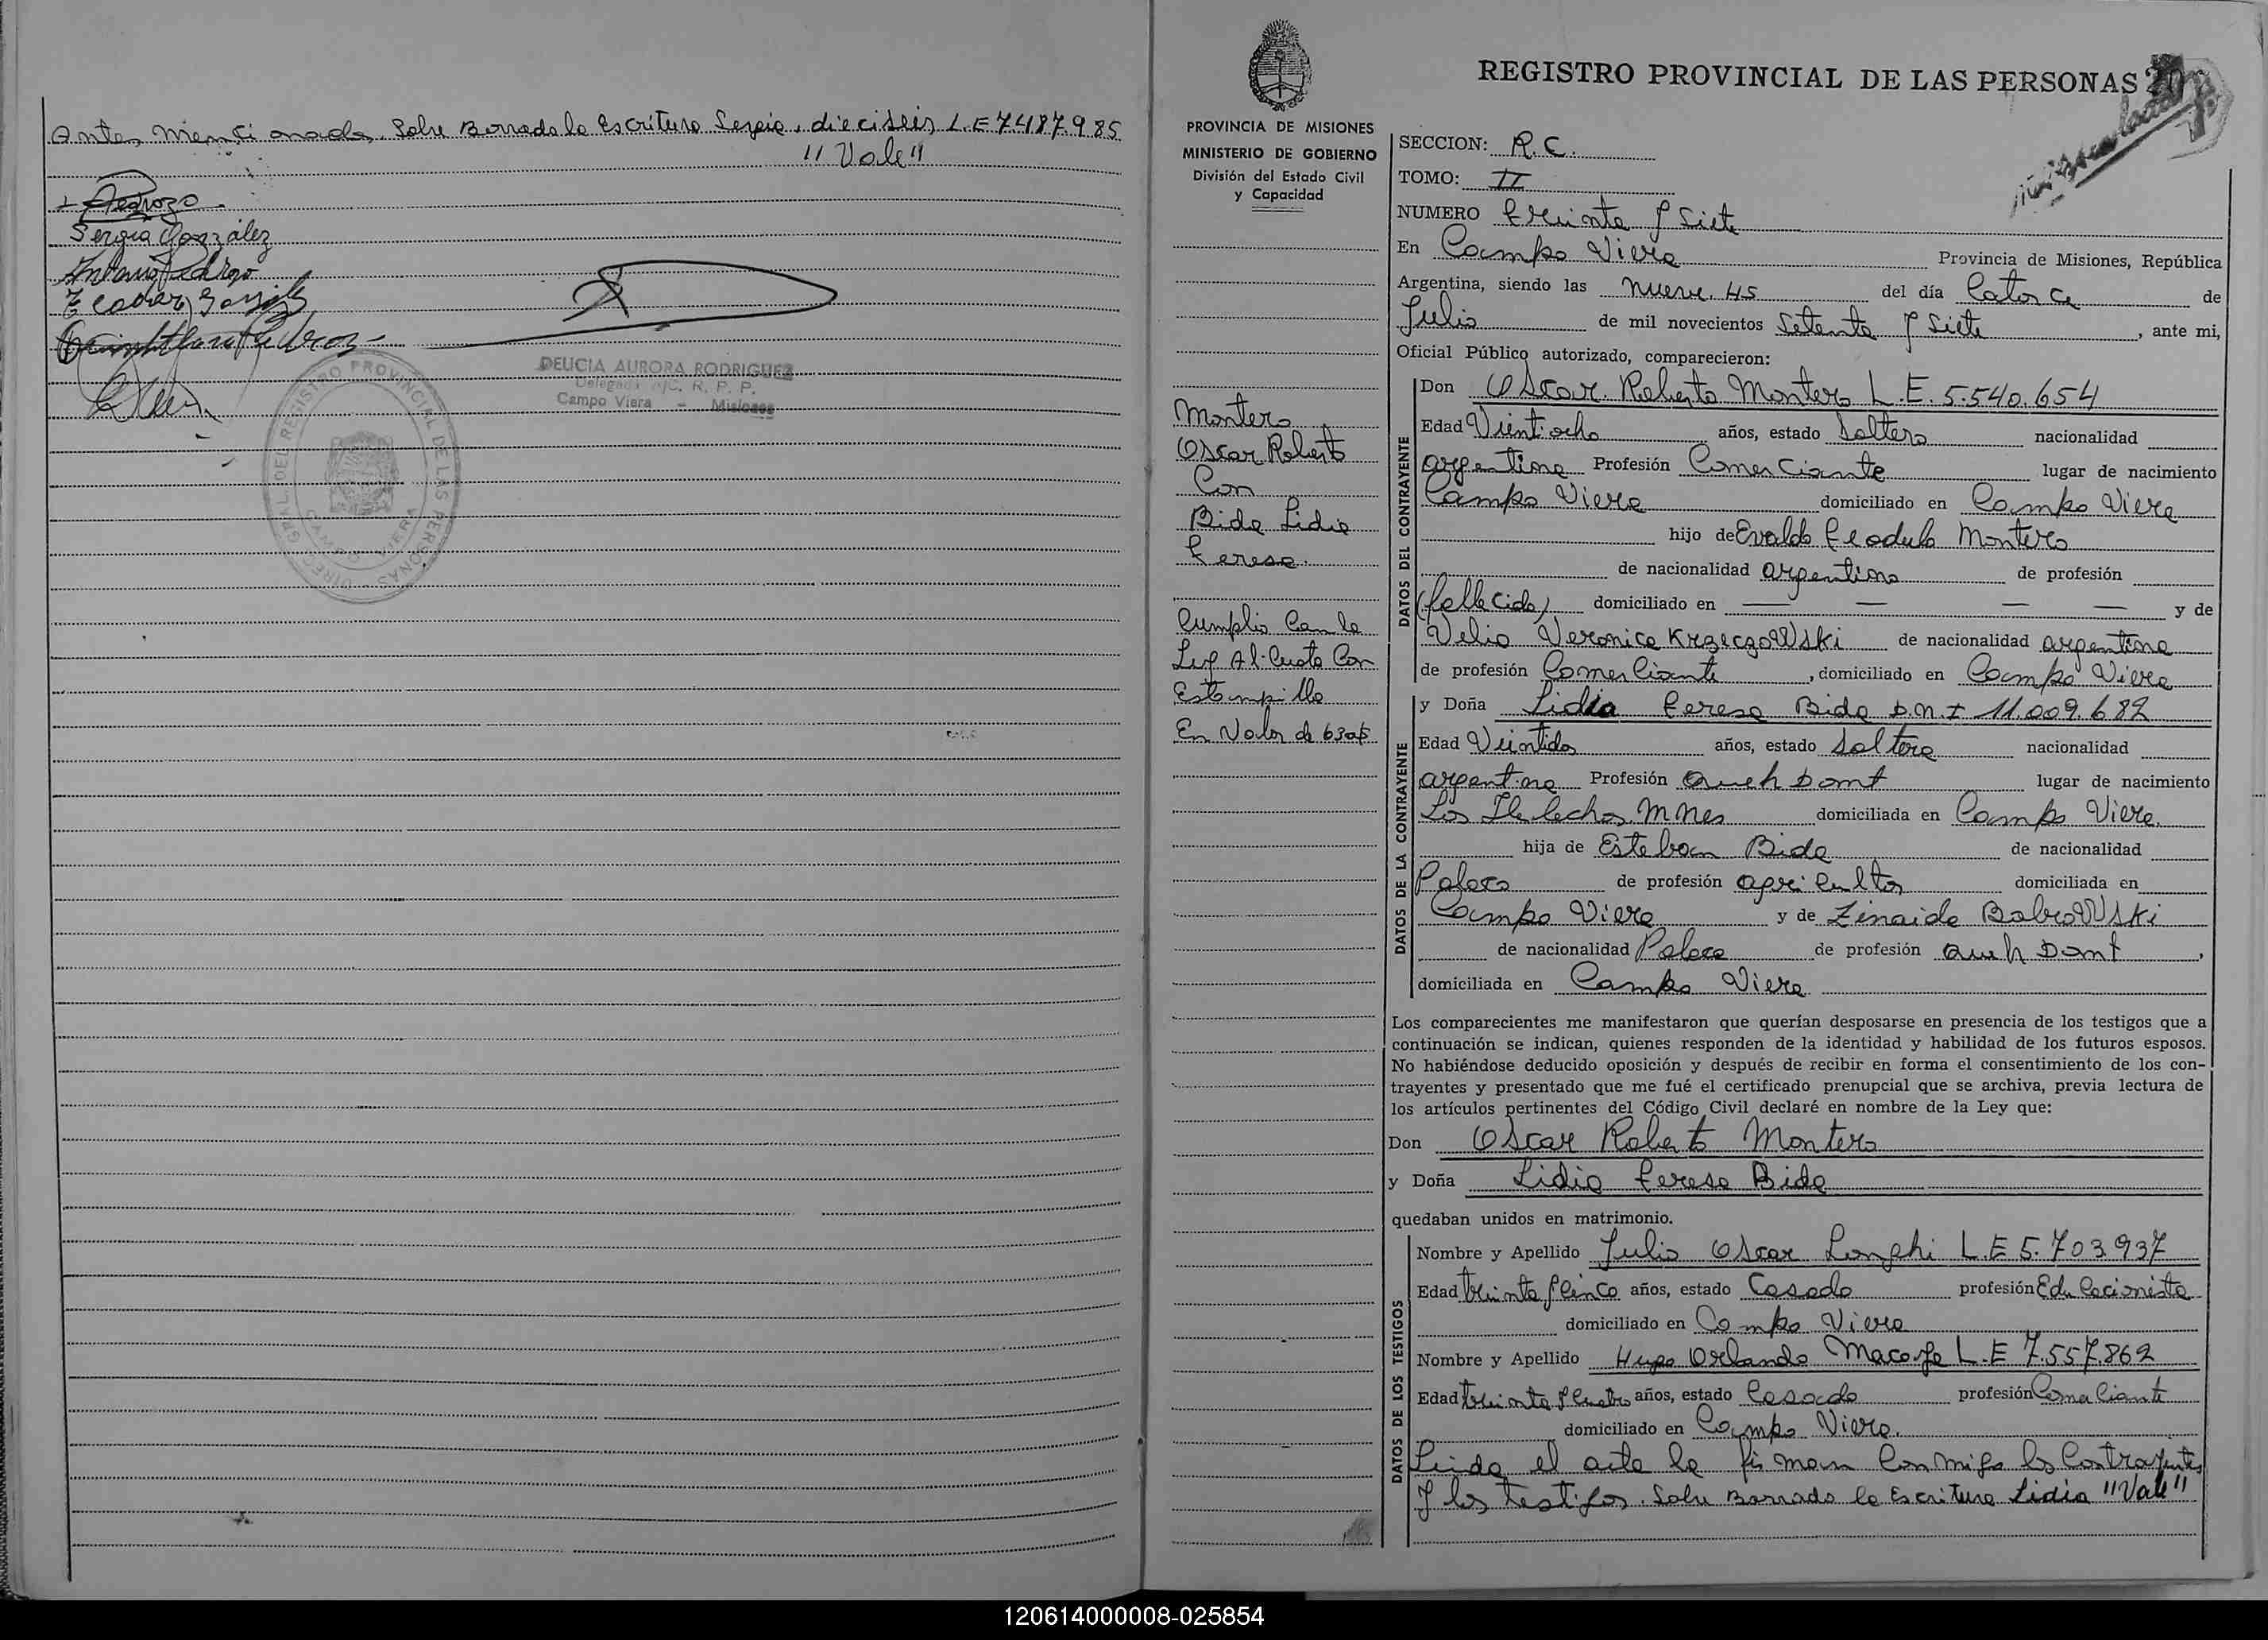 Antes Mencionada. Sobre Borrado la Escritura Sergia, dieciseis L.E 7.487.985
"Vale"
Pedrozo
Sergia González
DELICIA AURORA RODRIGUEZ
Delegada a/C. R. P. P.
Campo Viera - Misiones
DIREC. GRAL. DEL REGISTRO PROVINCIAL DE LAS PERSONAS
CAMPO VIERA
PROVINCIA DE MISIONES
MINISTERIO DE GOBIERNO
División del Estado Civil
y Capacidad
Montero
Oscar Roberto
Con
Bida Lidia
Teresa.
Cumplio Con la
Ley Al. Cuota Con
Estampilla
En Valor de 630\$
REGISTRO PROVINCIAL DE LAS PERSONAS
SECCION: R.C.
TOMO: II
NUMERO treinta y Siete
En Campo Viera Provincia de Misiones, República
Argentina, siendo las nueve. 45 del día Catorce de
Julio de mil novecientos Setenta y Siete, ante mi,
Oficial Público autorizado, comparecieron:
DATOS DEL CONTRAYENTE
Don Oscar Roberto Montero L.E. 5.540.654
Edad Vientiocho años, estado Soltero nacionalidad
argentina Profesión Comerciante lugar de nacimiento
Campo Viera domiciliado en Campo Viera
hijo de Evaldo Teodulo Montero
de nacionalidad argentino de profesión
(fallecido) domiciliado en — — — — y de
Velia Veronica Krzeczowski de nacionalidad argentina
de profesión Comerciante, domiciliado en Campo Viera
DATOS DE LA CONTRAYENTE
y Doña Lidia Teresa Bida D.N.I 11.009.682
Edad Veintidos años, estado Soltera nacionalidad
argentina Profesión Queh Domt lugar de nacimiento
Los Helechos. Mnes domiciliada en Campo Viera.
hija de Esteban Bida de nacionalidad
Polaco de profesión agricultor domiciliada en
Campo Viera y de Zinaida Bobrowski
de nacionalidad Polaca de profesión Queh Domt,
domiciliada en Campo Viera
Los comparecientes me manifestaron que querían desposarse en presencia de los testigos que a
continuación se indican, quienes responden de la identidad y habilidad de los futuros esposos.
No habiéndose deducido oposición y después de recibir en forma el consentimiento de los con-
trayentes y presentado que me fué el certificado prenupcial que se archiva, previa lectura de
los artículos pertinentes del Código Civil declaré en nombre de la Ley que:
Don Oscar Roberto Montero
y Doña Lidia Teresa Bida
quedaban unidos en matrimonio.
DATOS DE LOS TESTIGOS
Nombre y Apellido Julio Oscar Longhi L.E 5.703.937
Edad treinta y Cinco años, estado Casado profesión Educacionista
domiciliado en Campo Viera
Nombre y Apellido Hugo Orlando L.E 7.557.862
Edad treinta y Cuatro años, estado Casado profesión Comerciante
domiciliado en Campo Viera.
Leida el acta la firman Conmigo los Contrayentes
y los testigos. Sobre Borrado la Escritura Lidia "Vale"
120614000008-025854